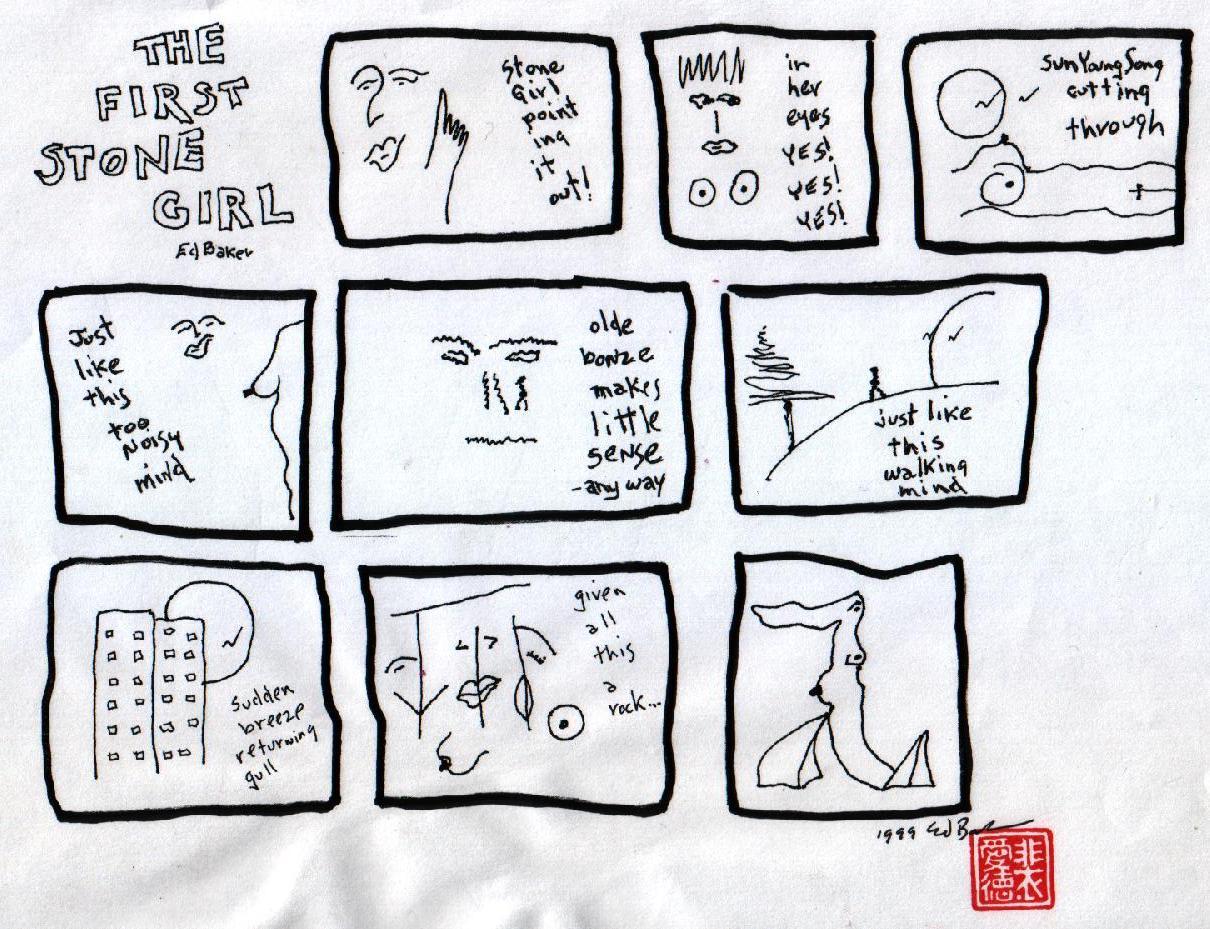 THE
FIRST
STONE
GIRL
Ed Baker
stone
Girl
point
ing
it
out!
in
her
eyes
YES!
YES!
YES!
SunYoungSong
cutting
through
Just
like
this
too
Noisy
mind
olde
bonze
makes
little
sense
-any way
just like
this
walking
mind
Sudden
breeze
returning
gull
given
all
this
a
rock...
1999 Ed Baker